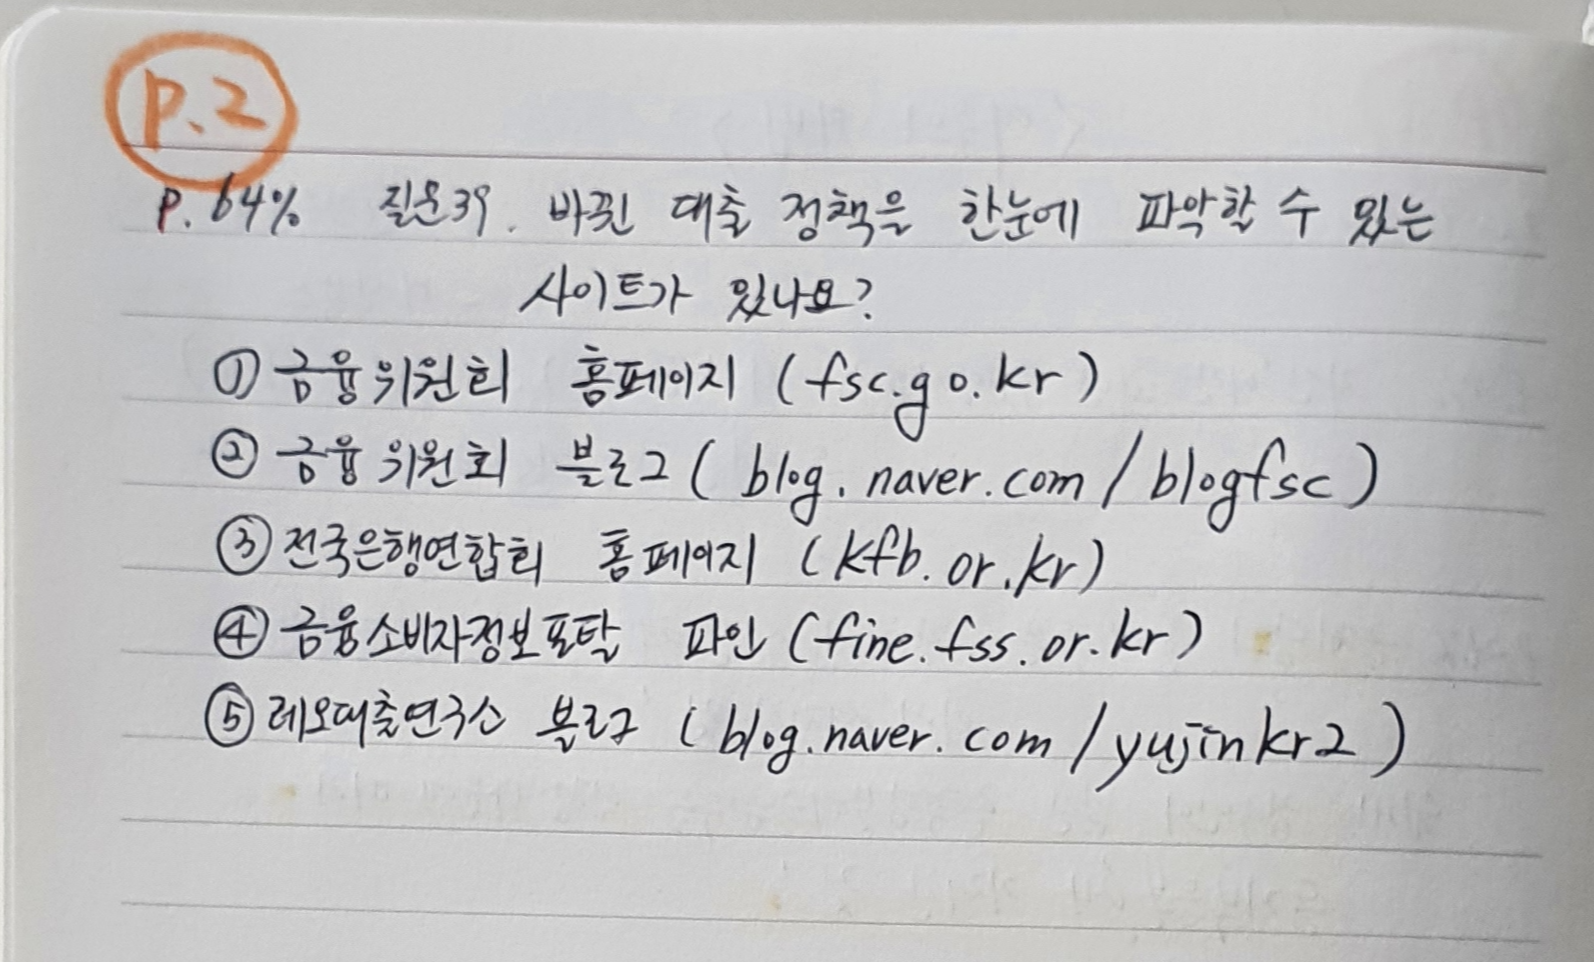 P.2
P. 64% 질문39. 바뀐 대출 정책을 한눈에 파악할 수 있는
사이트가 있나요?
① 금융위원회 홈페이지 (fsc.go.kr)
② 금융위원회 블로그 (blog.naver.com/blogfsc)
③ 전국은행연합회 홈페이지 (kfb.or.kr)
④ 금융소비자정보포탈 파인 (fine.fss.or.kr)
⑤ 레오대출연구소 블로그 (blog.naver.com/yujinkr2)